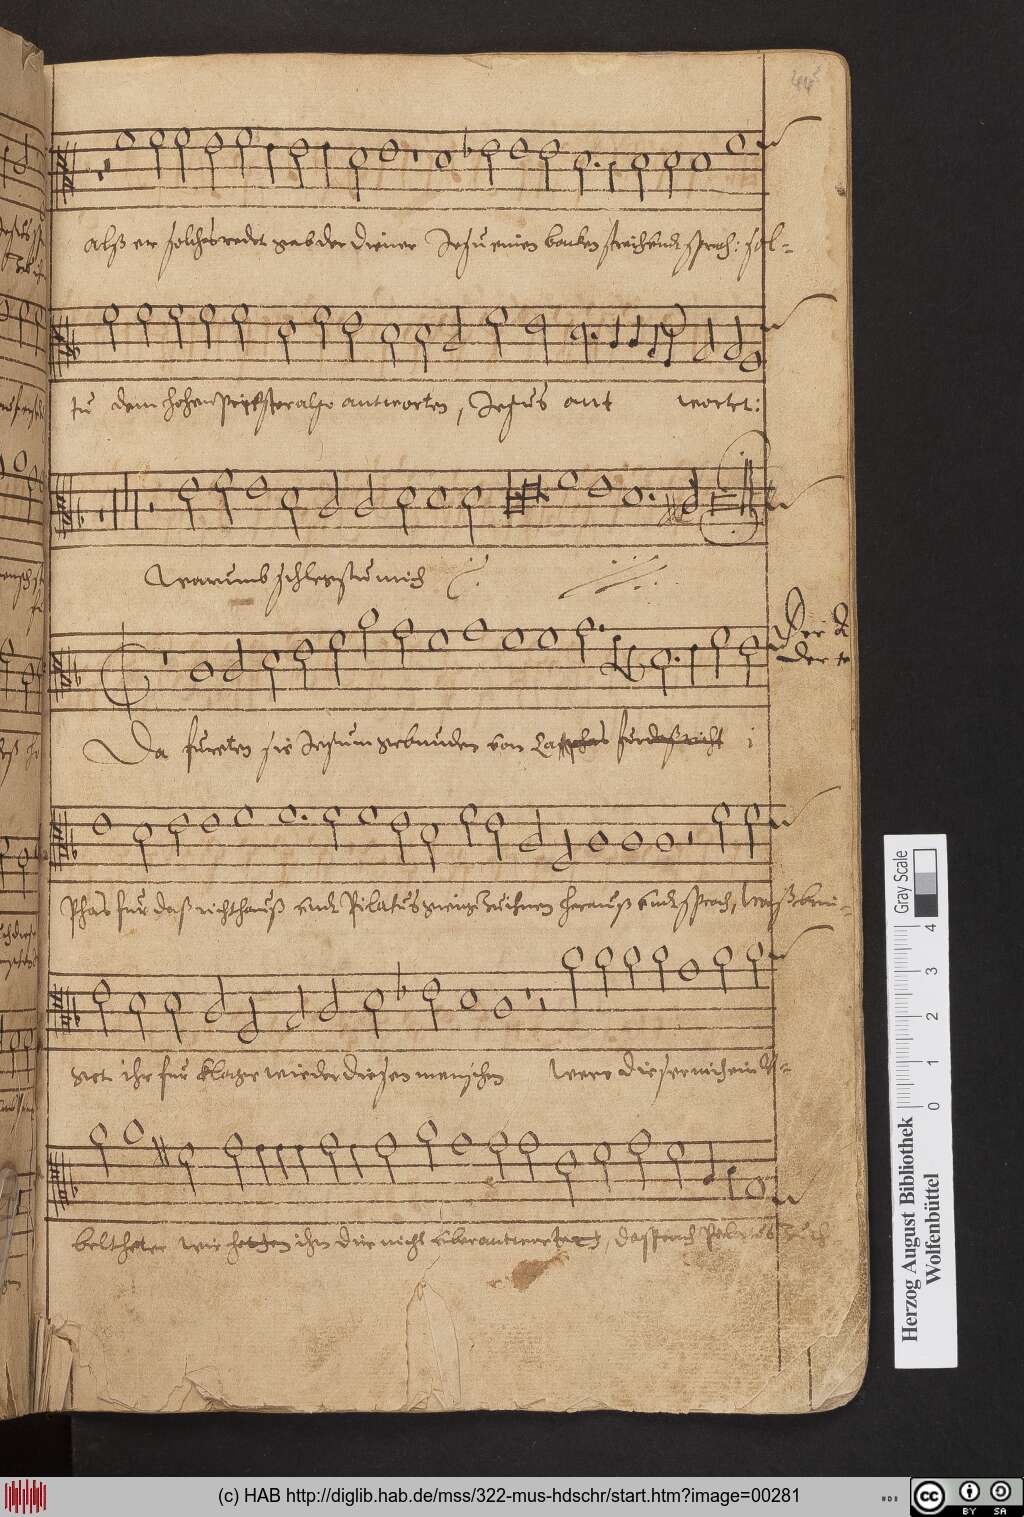 442
alß er solches redet gab der diener Jesu einen backen streich vnd sprach: sol-
tu dem hohenpriester also antworten, Jesus ant wortet:
Warumb schlegstu mich
Der
der
Da fureten sie Jesum gebunden von Ca
phas fur daß richthauß vnd Pilatus gieng zu ihnen herauß vnd sprach, waß brin-
get ihr fur klage wieder diesen menschen were dieser nicht ein v-
beltheter wir hetten ihn dir nicht uberantwortet, da sprach Pilatus zu ih
Gray Scale
4
3
2
1
0
Herzog August Bibliothek
Wolfenbüttel
(c) HAB http://diglib.hab.de/mss/322-mus-hdschr/start.htm?image=00281
cc
BY SA